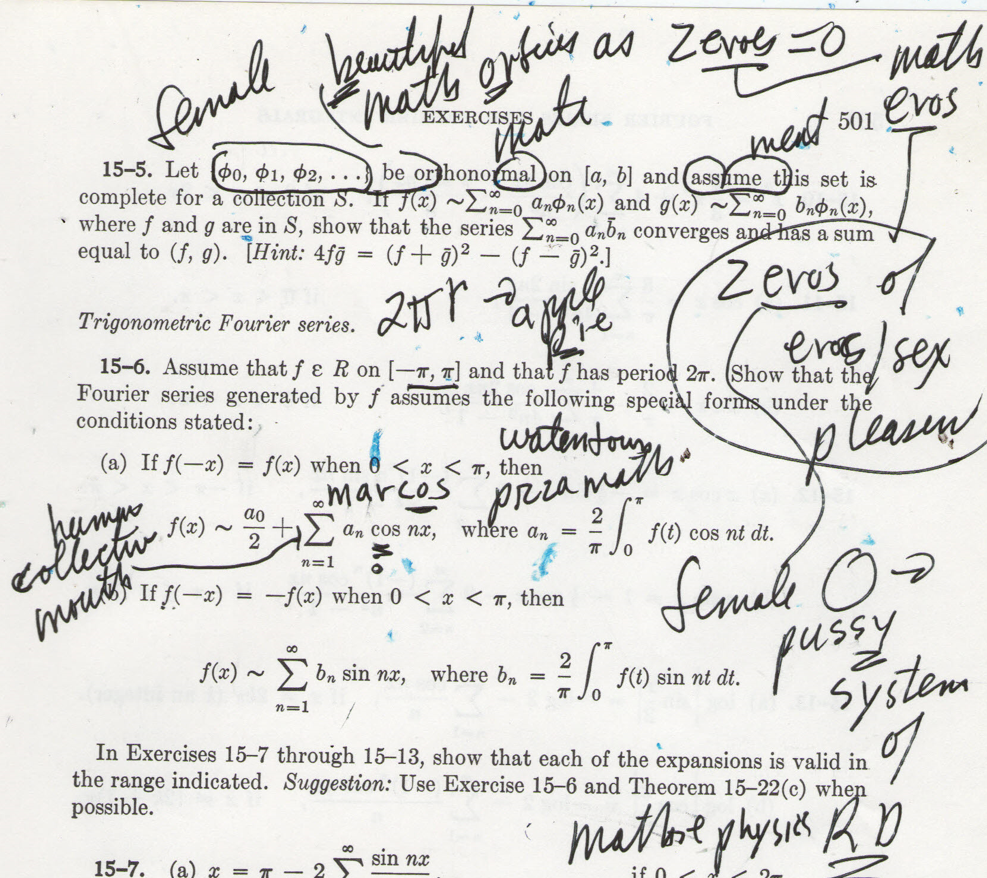 female beautiful math as zeroes = 0 math
EXERCISES 501 eros
math ment
15–5. Let {ϕ0, ϕ1, ϕ2, . . .} be orthonormal on [a, b] and assume this set is
complete for a collection S. If f(x) ~ ∑_{n=0}^{∞} a_nϕ_n(x) and g(x) ~ ∑_{n=0}^{∞} b_nϕ_n(x),
where f and g are in S, show that the series ∑_{n=0}^{∞} a_n b̄_n converges and has a sum
equal to (f, g). [Hint: 4fḡ = (f + ḡ)² − (f − ḡ)².]
zeros of
eros/sex
2πr → apple
pie
Trigonometric Fourier series.
15–6. Assume that f ε R on [−π, π] and that f has period 2π. Show that the
Fourier series generated by f assumes the following special forms under the
conditions stated:
watertown
pizza math
(a) If f(−x) = f(x) when 0 < x < π, then
marcos
human
collective
mouth
f(x) ~ a_0/2 + ∑_{n=1}^{∞} a_n cos nx, where a_n = 2/π ∫_0^π f(t) cos nt dt.
(b) If f(−x) = −f(x) when 0 < x < π, then
female O →
pussy
system
of
f(x) ~ ∑_{n=1}^{∞} b_n sin nx, where b_n = 2/π ∫_0^π f(t) sin nt dt.
In Exercises 15–7 through 15–13, show that each of the expansions is valid in
the range indicated. Suggestion: Use Exercise 15–6 and Theorem 15–22(c) when
possible.
physics R D
15–7. (a) x = π − 2 ∑^{∞} sin nx
if 0 < x < 2π